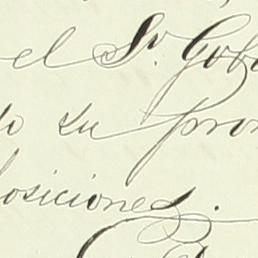 el Sr. Gob
do su pron
posiciones.